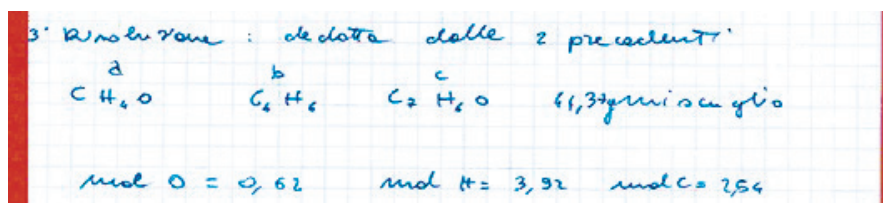 3ª Risoluzione : dedotta dalle 2 precedenti
a b c
C H₄ O C₆ H₆ C₂ H₆ O 44,37g miscuglio
mol O = 0,62 mol H = 3,92 mol C = 2,54